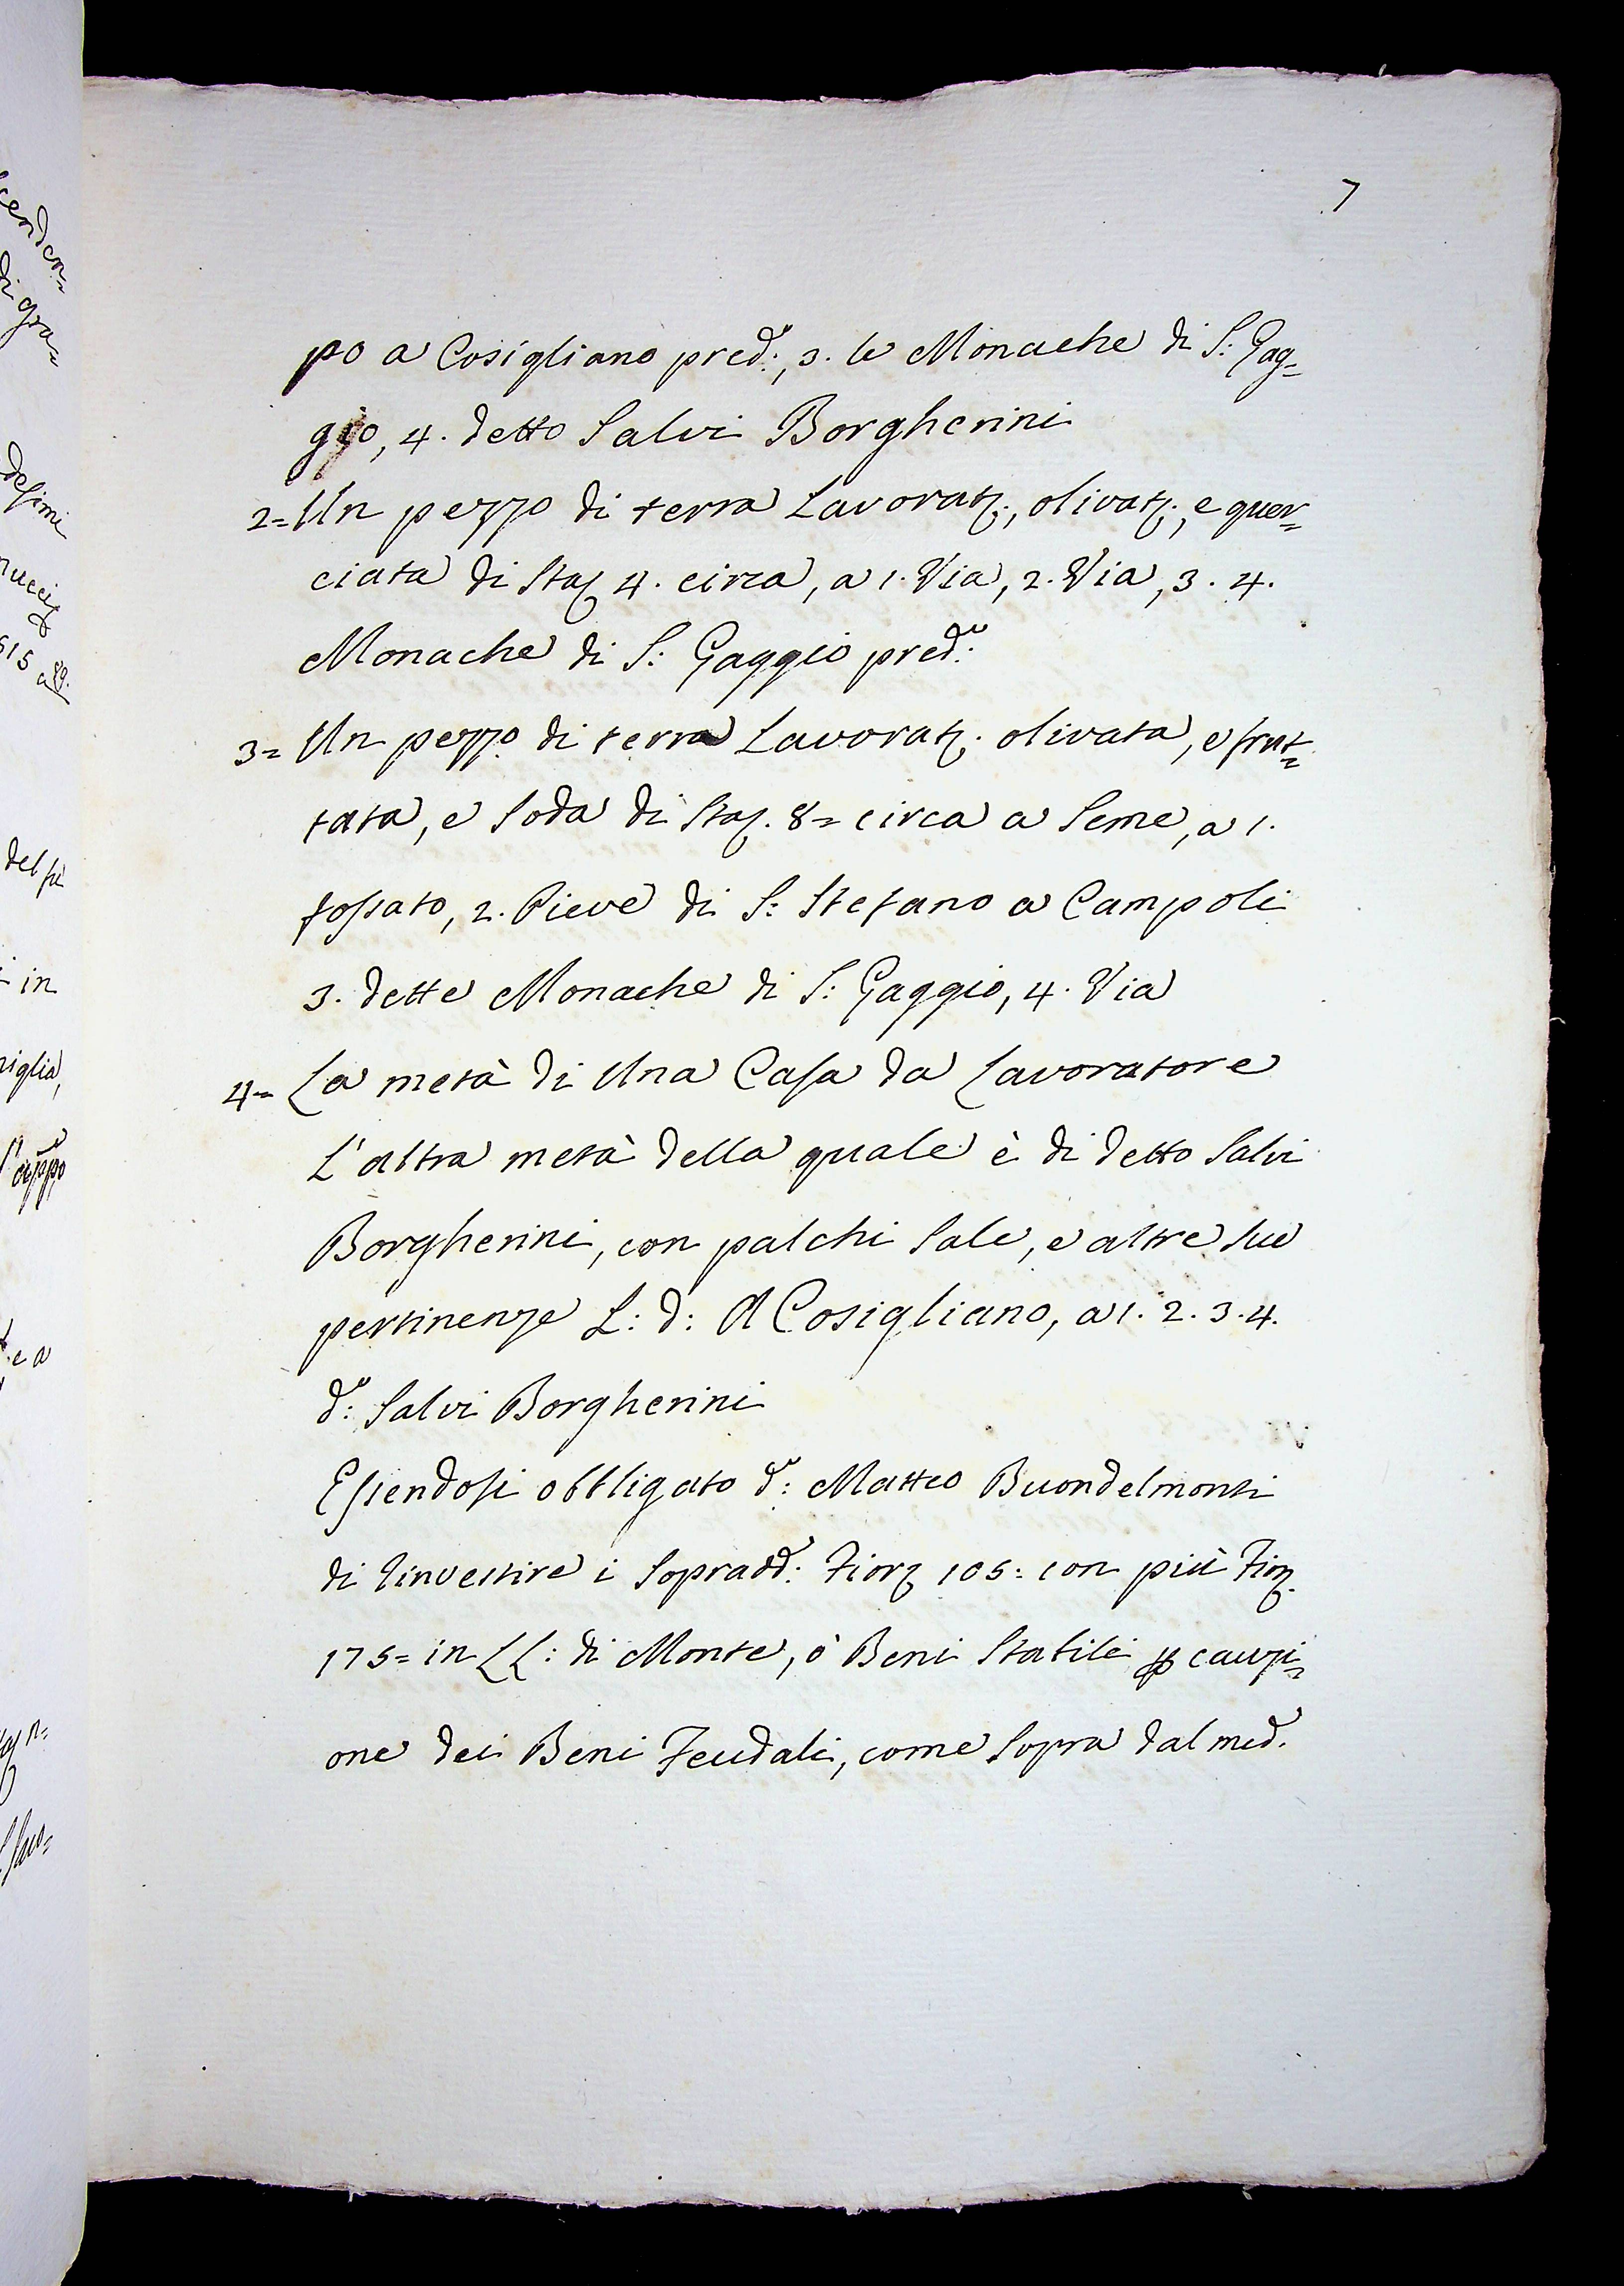 7
po a Cosigliano pred:, 3. le Monache di S: Gag=
gio, 4. detto Salvi Borgherini
2= Un pezzo di terra Lavorat:, olivat:, e quer=
ciata di Sta: 4. circa, a 1. Via, 2. Via, 3. 4.
Monache di S: Gaggio pred:
3= Un pezzo di terra Lavorat: olivata, e frut=
tata, e soda di Sta: 8= circa a Seme, a 1.
fossato, 2. Pieve di S: Stefano a Campoli
3. dette Monache di S: Gaggio, 4. Via
4= La metà di Una Casa da Lavoratore
L'altra metà della quale è di detto Salvi
Borgherini, con palchi Sale, e altre sue
pertinenze L: d: A Cosigliano, a 1. 2. 3. 4.
d: Salvi Borgherini
Essendosi obbligato d: Matteo Buondelmonti
di rinvestire i Sopradd: Fior: 105= con più Fior:
175= in LL: di Monte, ò Beni Stabili p cauzi=
one dei Beni Feudali, come Sopra dal med.
cenden=
di gra=
desimi
nucci
515
del
in
iglia,
e a